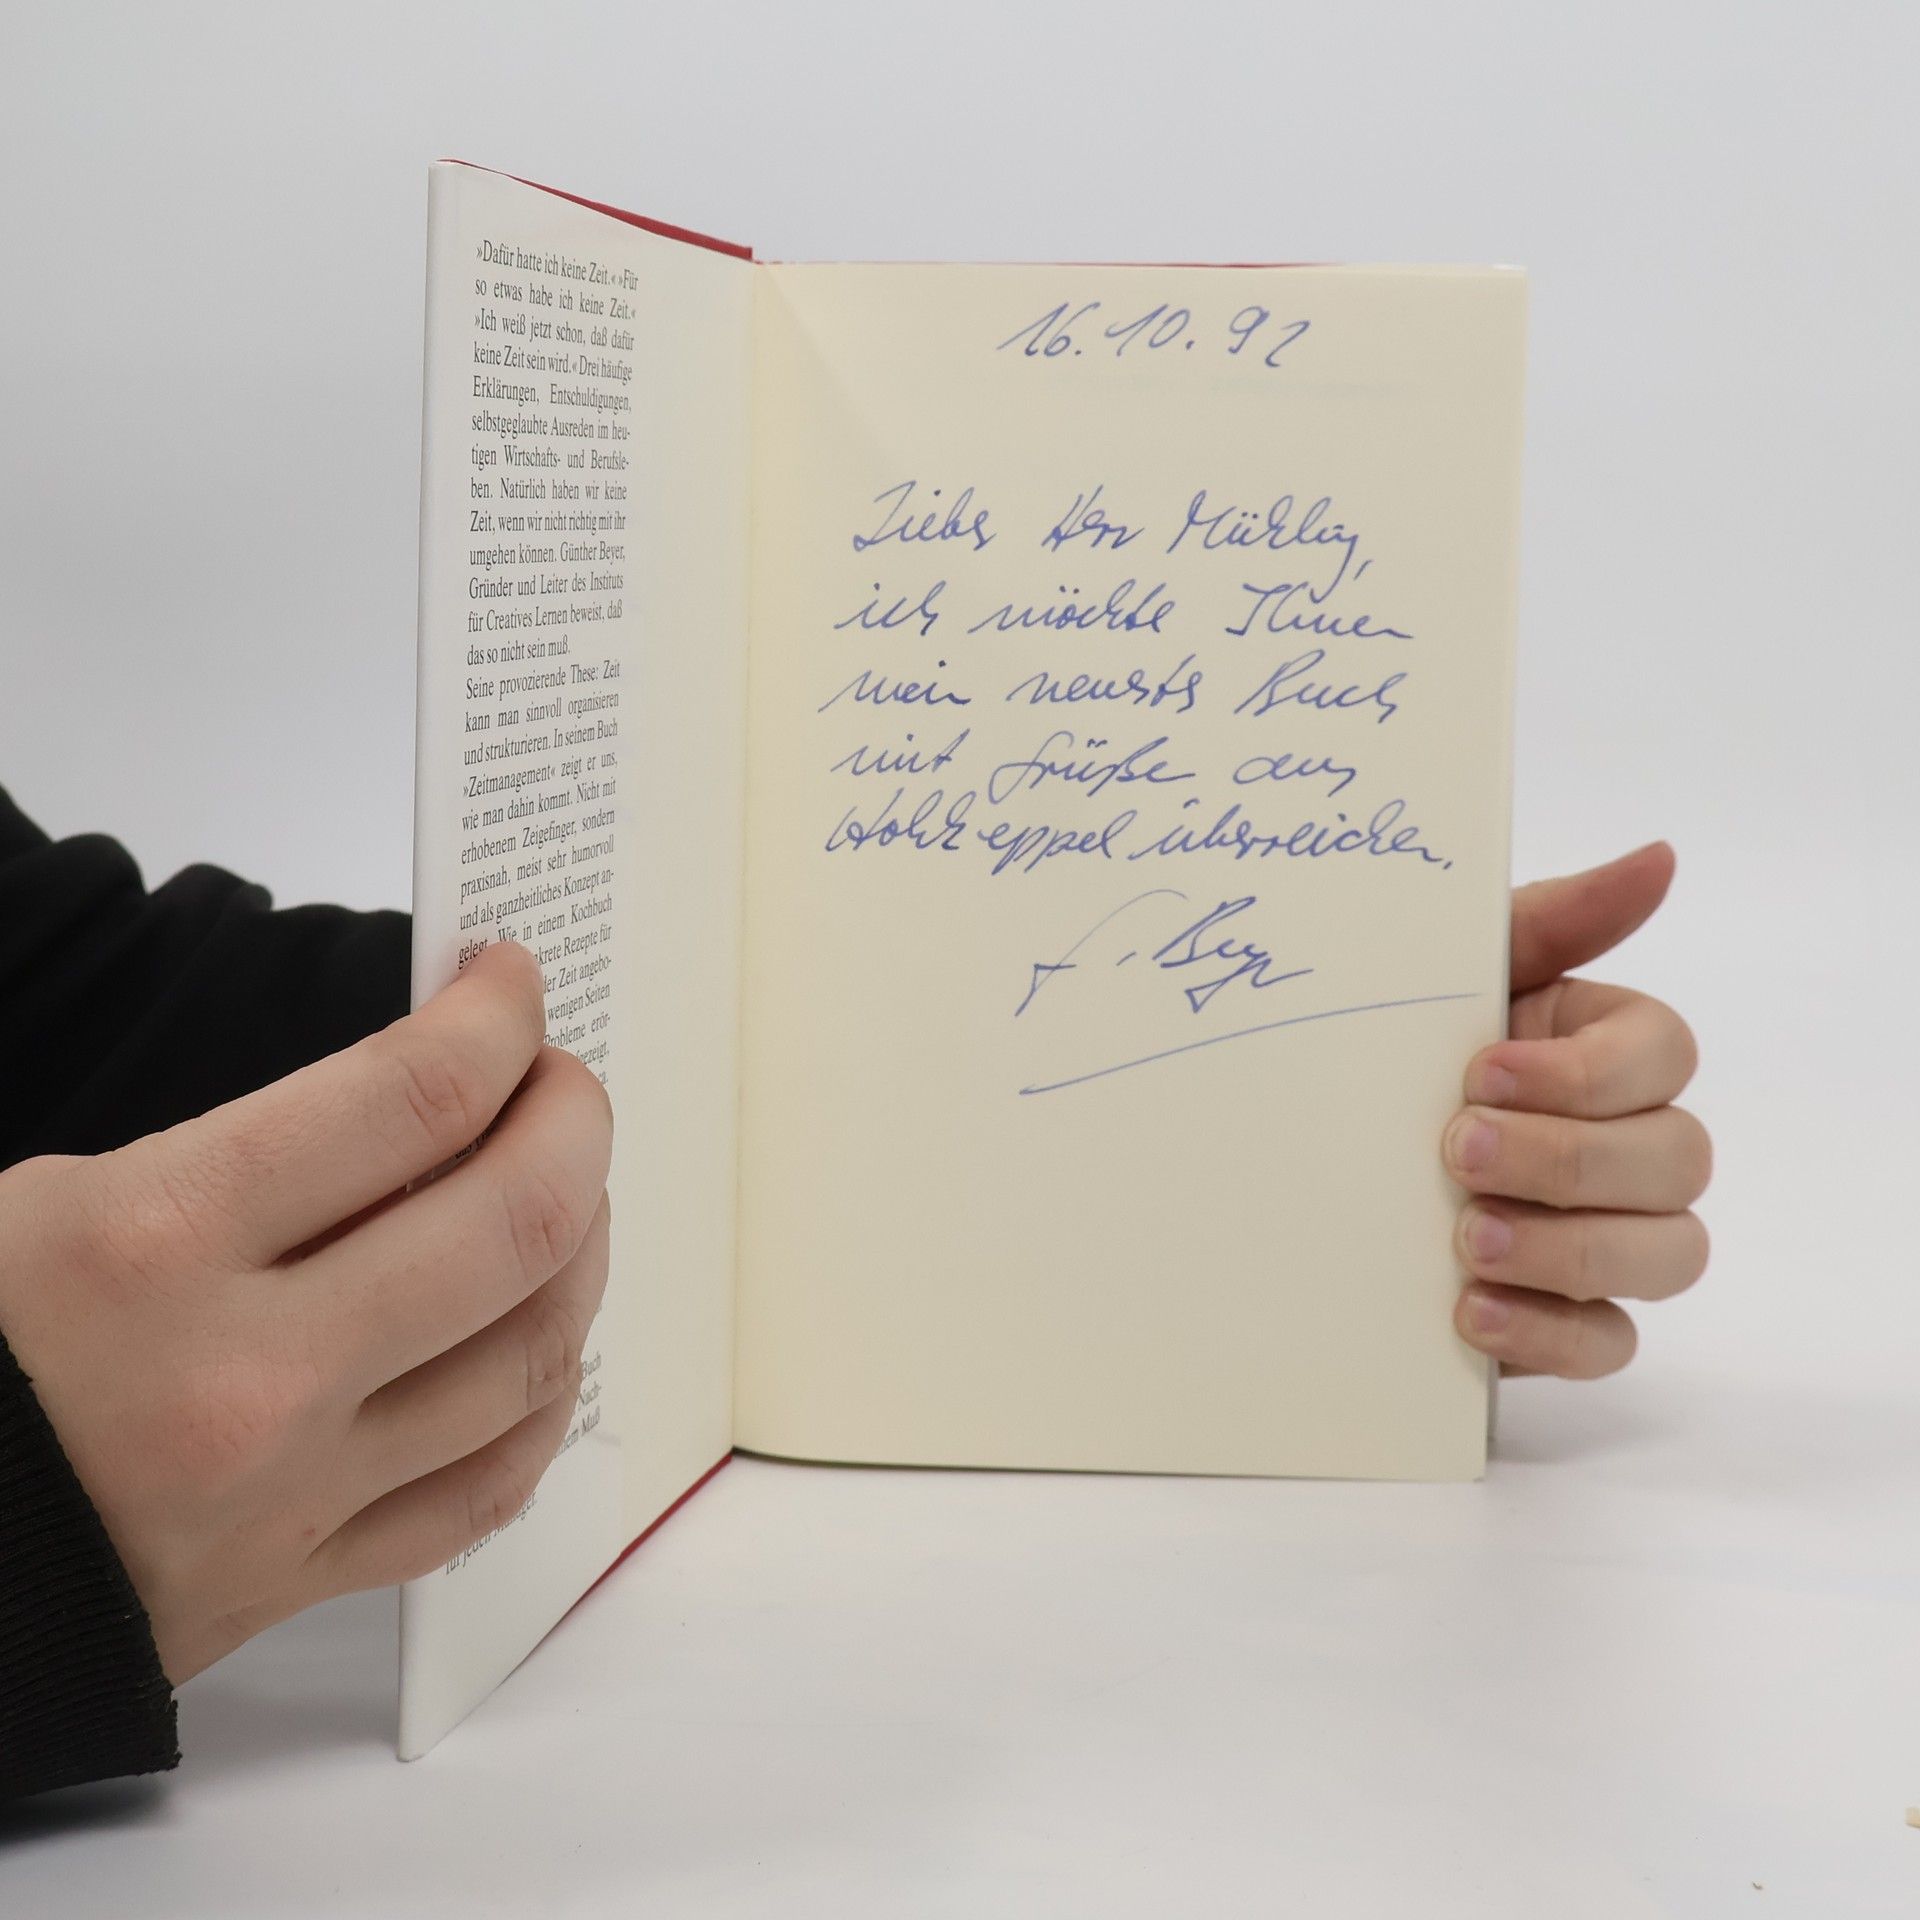 »Dafür hatte ich keine Zeit.« »Für
so etwas habe ich keine Zeit.«
»Ich weiß jetzt schon, daß dafür
keine Zeit sein wird.« Drei häufige
Erklärungen, Entschuldigungen,
selbstgeglaubte Ausreden im heu-
tigen Wirtschafts- und Berufsle-
ben. Natürlich haben wir keine
Zeit, wenn wir nicht richtig mit ihr
umgehen können. Günther Beyer,
Gründer und Leiter des Instituts
für Creatives Lernen beweist, daß
das so nicht sein muß.
Seine provozierende These: Zeit
kann man sinnvoll organisieren
und strukturieren. In seinem Buch
»Zeitmanagement« zeigt er uns,
wie man dahin kommt. Nicht mit
erhobenem Zeigefinger, sondern
praxisnah, meist sehr humorvoll
und als ganzheitliches Konzept an-
gelegt. Wie in einem Kochbuch
Rezepte für
der Zeit angebo-
wenigen Seiten
Probleme erör-
Buch
Nach-
Muß
für jeden Manager.
16.10.92
Lieber Herr
ich möchte Ihnen
mein neustes Buch
mit Grüße aus
Hohkeppel überreichen.
G. Beyer